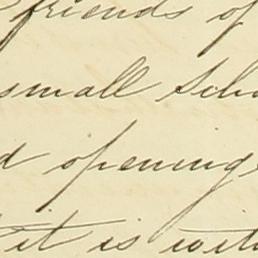 friends of
small
opening
it is with